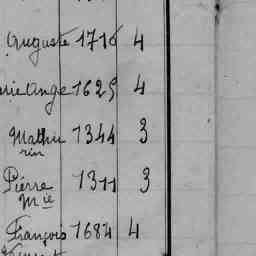 Auguste 1716 4
Ange 1629 4
Mathu 1344 3
rin
Pierre 1311 3
Mie
François 1684 4